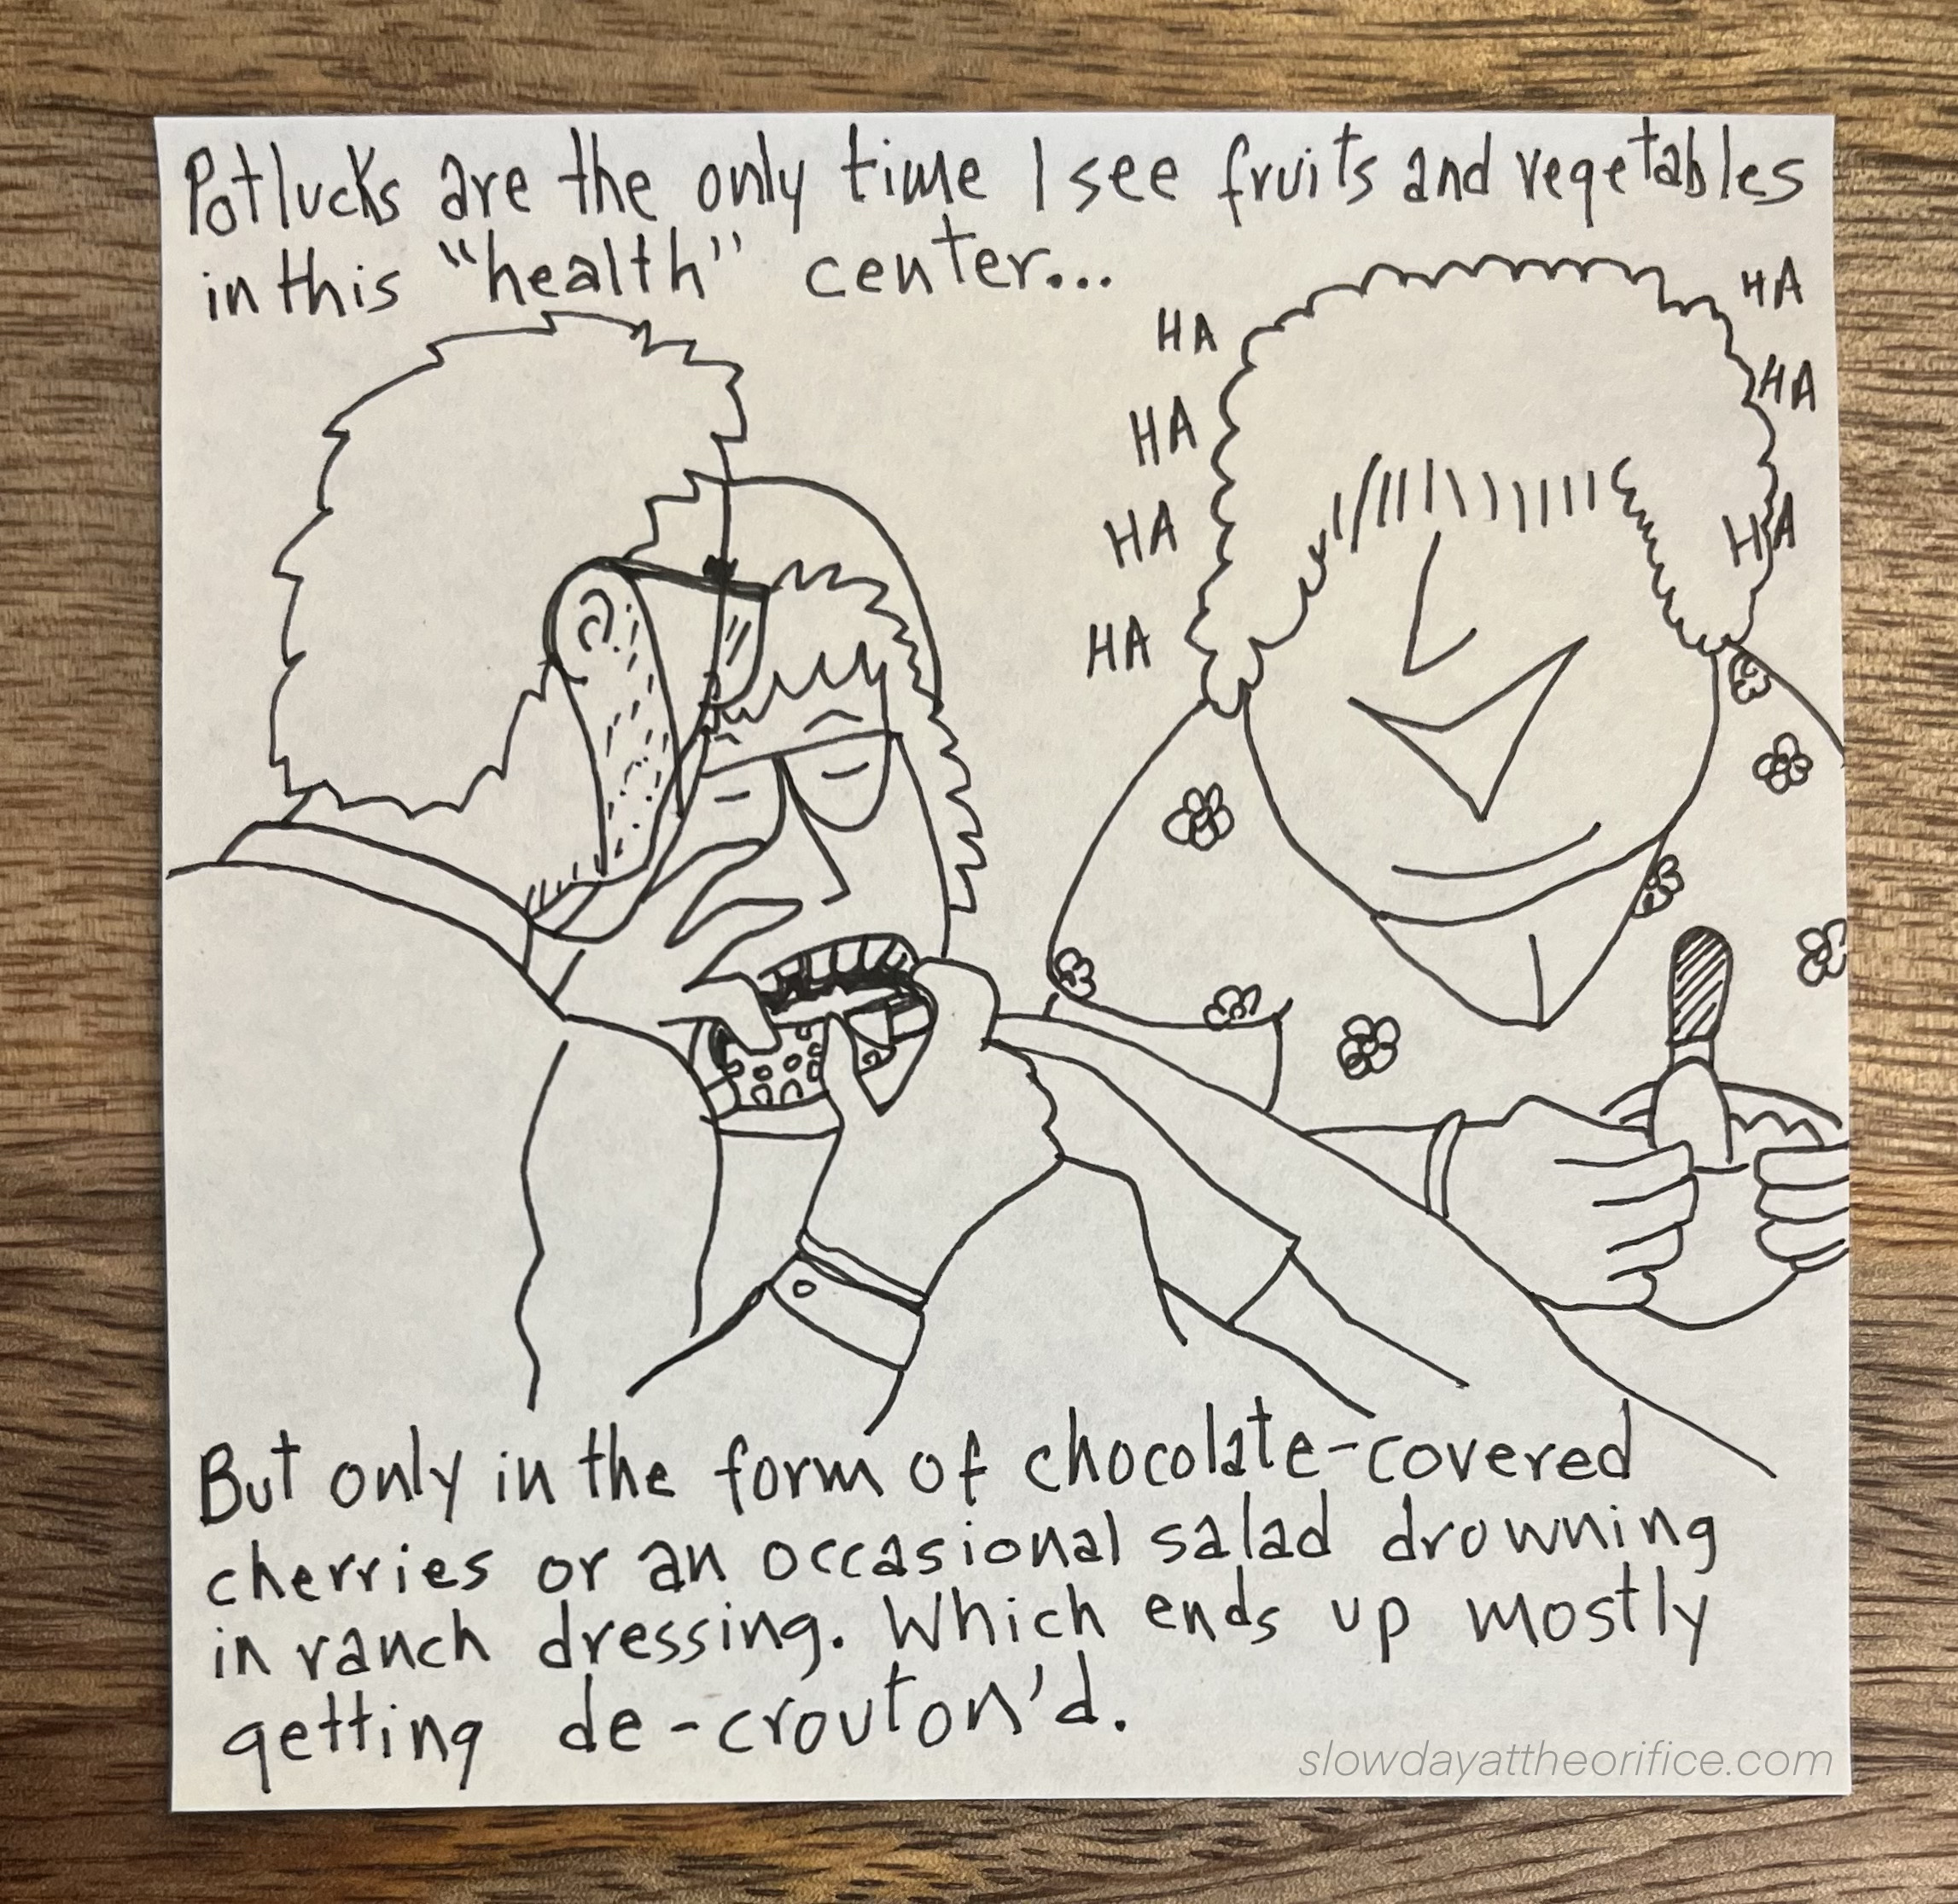 Potlucks are the only time I see fruits and vegetables
in this "health" center...
HA
HA
HA
HA
HA
HA
HA
But only in the form of chocolate-covered
cherries or an occasional salad drowning
in ranch dressing. Which ends up mostly
getting de-crouton'd.
slowdayattheorifice.com